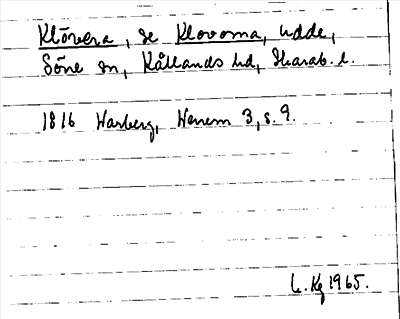 Klövera, se Klovorna, udde,
Söne sn, Kållands hd, Skarab. l.
1816 Warberg, Wenern 3, s. 9.
L. Kg 1965.